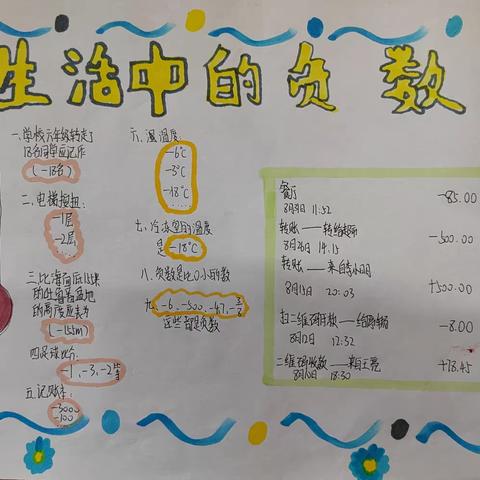 生活中的负数
一、学校六年级转走了
18名同学应记作
(-18名)
二、电梯按钮:
-1层
-2层
三、比海面低155米
的吐鲁番盆地
的高度应表示
(-155m)
四、足球比分:
-1,-3,-2等
五、记账本:
-3000
-100
六、温温度:
-6℃
-3℃
-18℃
......
七、冷冻室的温度
是-18℃
八、负数是比0小的数
九、-6,-500,-47,
这些都是负数
餐厅 -85.00
8月31日 11:52
转账——转给 -500.00
8月26日 14:15
转账——来自 +500.00
8月15日 20:03
扫二维码付款——给 -8.00
8月12日 12:32
二维码收款——来自王亮 +78.45
18:30